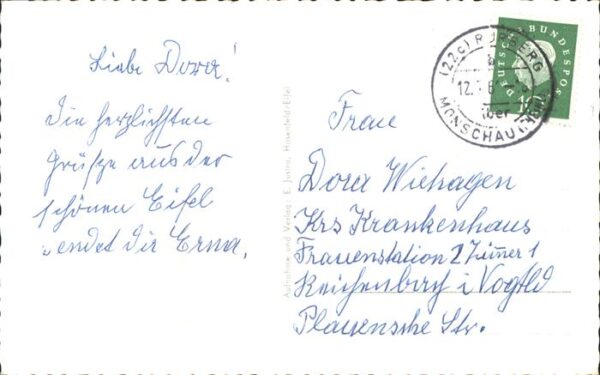 Liebe Dora!
Die herzlichsten
Grüße aus der
schönen Eifel
sendet dir Erna.
Aufnahme und Verlag E. Justen, Hasenfeld-Eifel
(22c) RURBERG
über
MONSCHAU
DEUTSCHE BUNDESPOST
Frau
Dora Wiehagen
Krs Krankenhaus
Frauenstation 2 Zimer 1
Reichenbach i Vogtld
Plauensche Str.